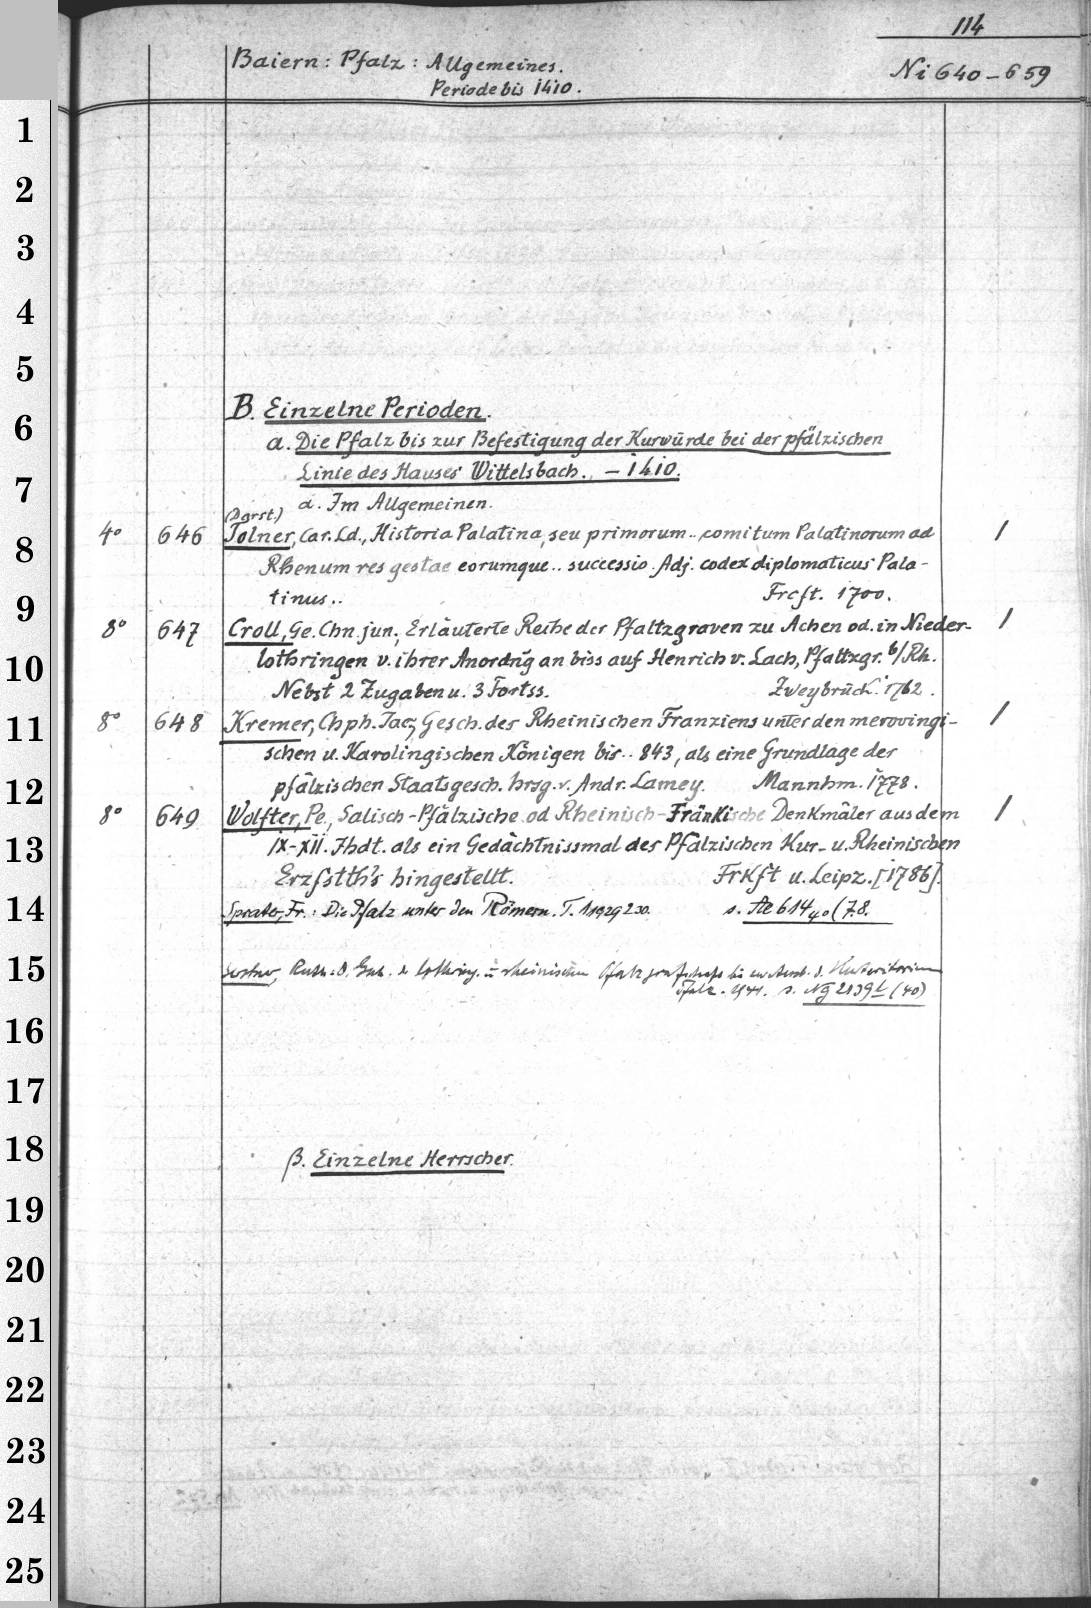 114
Baiern: Pfalz: Allgemeines.
Ni 640-659
Periode bis 1410.
1
2
3
4
5
6
7
8
9
10
11
12
13
14
15
16
17
18
19
20
21
22
23
24
25
B. Einzelne Perioden.
a. Die Pfalz bis zur Befestigung der Kurwürde bei der pfälzischen
Linie des Hauses Wittelsbach. – 1410.
α. Im Allgemeinen.
(Darst.)
4° 646 Tolner, Car. Ld., Historia Palatina, seu primorum.. comitum Palatinorum ad /
Rhenum res gestae eorumque.. successio. Adj. codex diplomaticus Pala-
tinus.. Frcft. 1700.
8° 647 Croll, Ge. Chn. jun., Erläuterte Reihe der Pfaltzgraven zu Achen od. in Nieder- /
lothringen v. ihrer Anordng an biss auf Henrich v. Lach, Pfaltzgr. b/Rh.
Nebst 2 Zugaben u. 3 Fortss. Zweybrück. 1762.
8° 648 Kremer, Chph. Jac., Gesch. des Rheinischen Franziens unter den merovingi- /
schen u. Karolingischen Königen bis.. 843, als eine Grundlage der
pfälzischen Staatsgesch. hrsg. v. Andr. Lamey. Mannhm. 1778.
8° 649 Wolfter, Pe., Salisch-Pfälzische od Rheinisch-Fränkische Denkmäler aus dem /
IX-XII. Jhdt. als ein Gedächtnissmal des Pfälzischen Kur- u. Rheinischen
Erzfstth's hingestellt. Frkft u. Leipz. [1786].
Sprater, Fr.: Die Pfalz unter den Römern. T. 1 1929 2 30. s. Ae 614 40 (7.8.
Ruth: D. Gesch. d. lothring. u. rheinischen Pfalzgrafschaft bis
Pfalz. 1941. s. Ng 2139 (40)
β. Einzelne Herrscher.